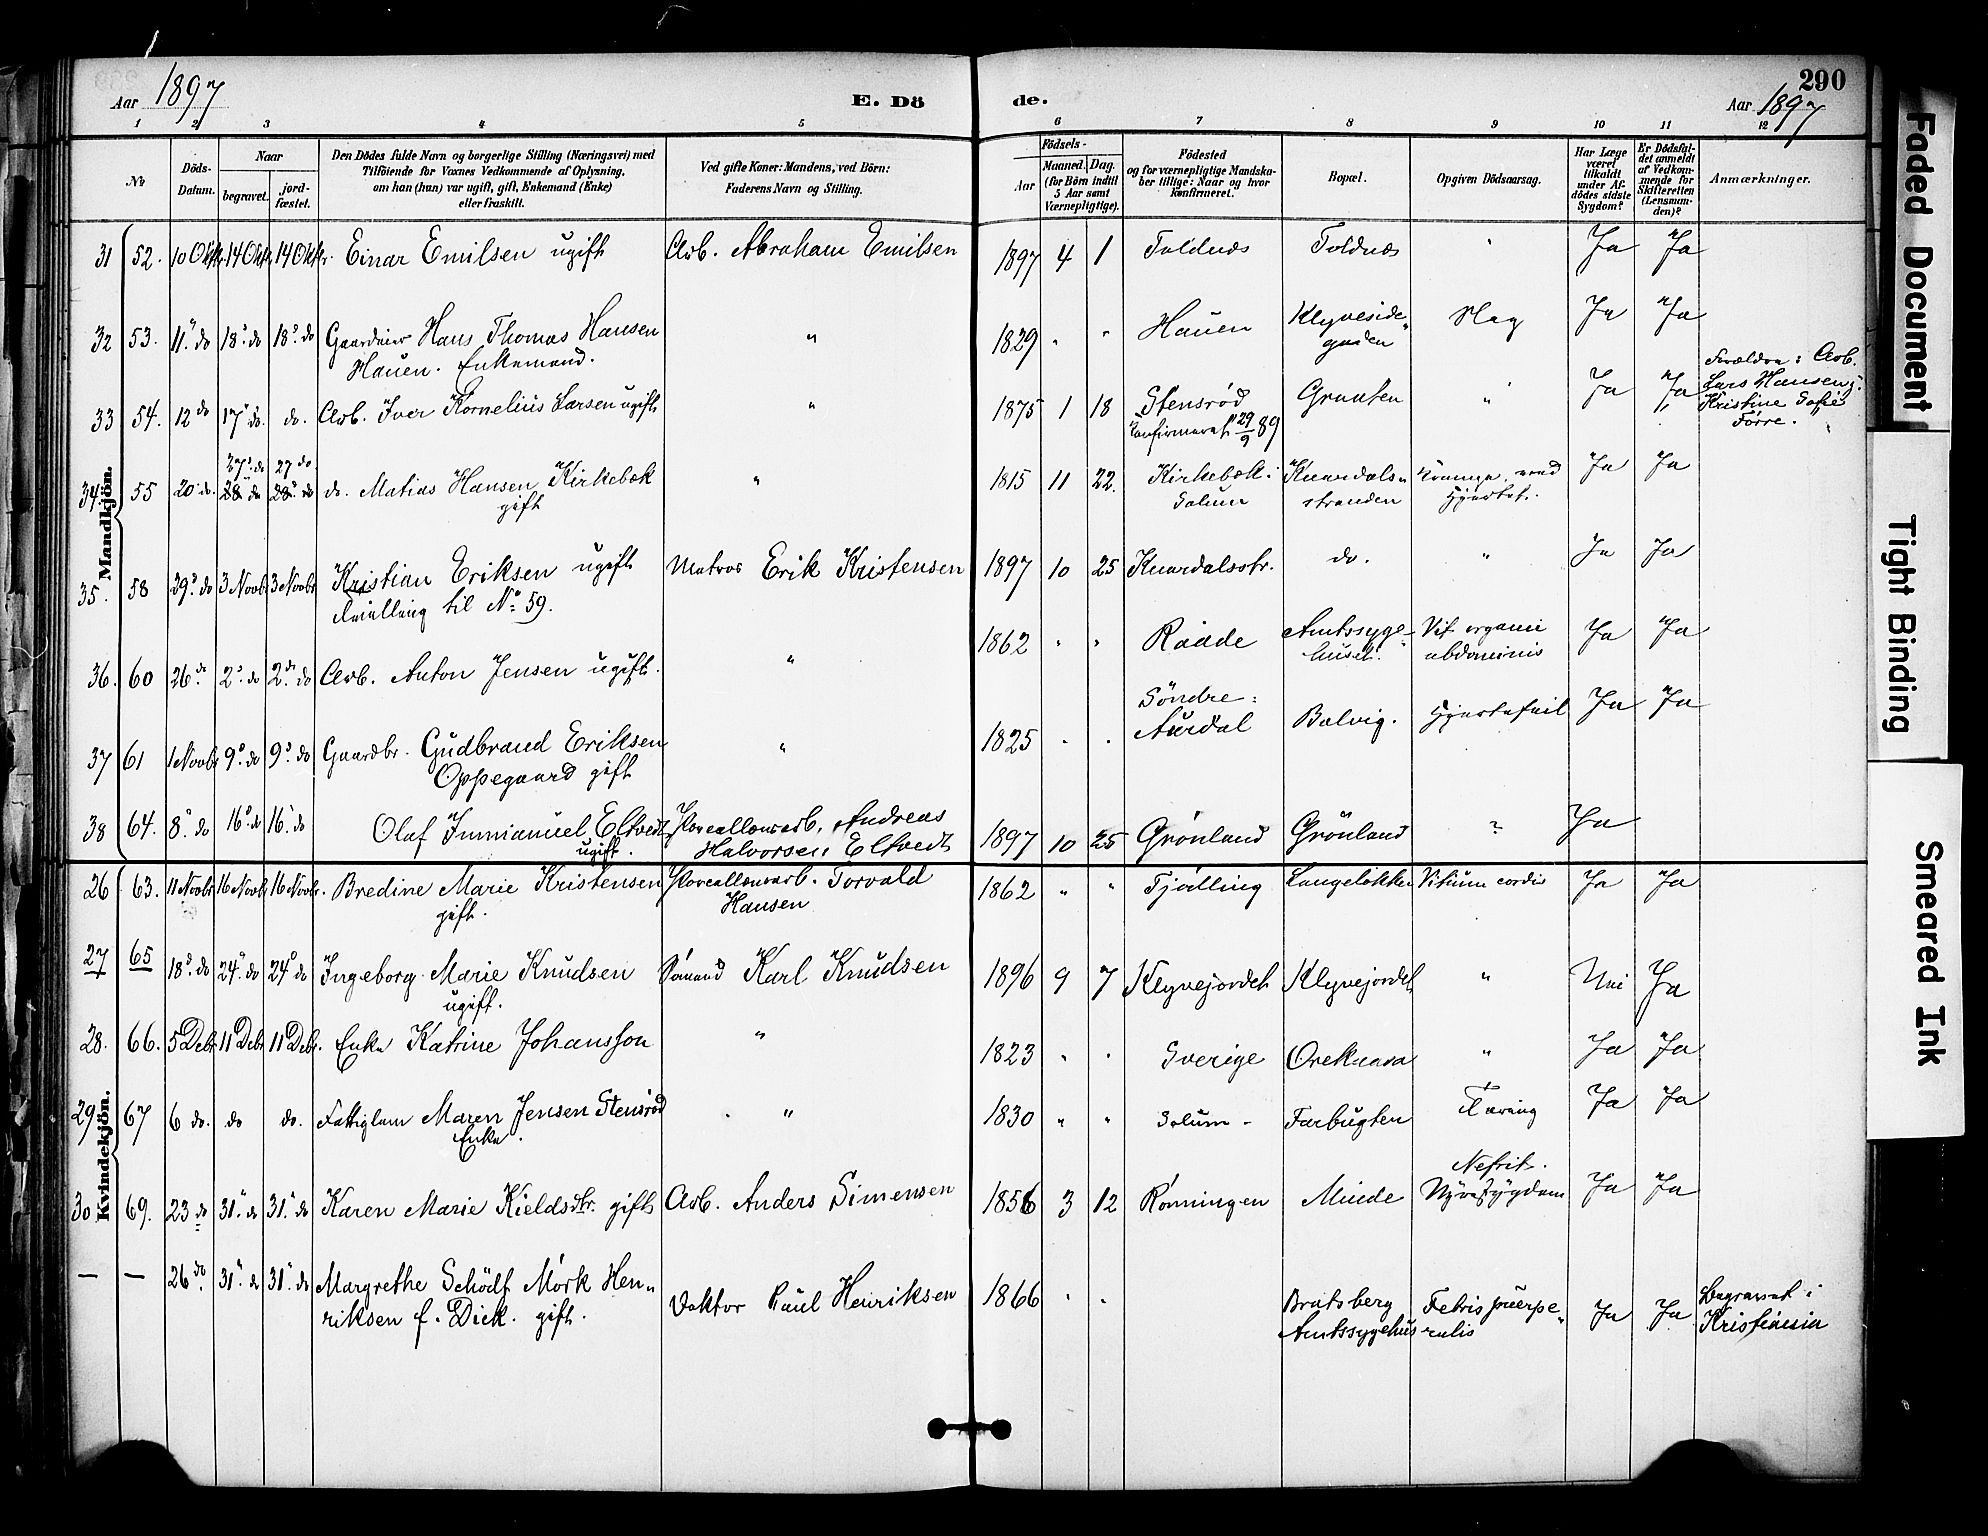 Aar 1897
E. Dö
de.
290
Aar 1897
1 2 3 4 5 6 7 8 9 10 11 12
No
Döds-Datum.
Naar
begravet.
jord-fæstet.
Den Dödes fulde Navn og borgerlige Stilling (Næringsvei) med
Tilföiende for Voxnes Vedkommende af Oplysning,
om han (hun) var ugift, gift, Enkemand (Enke)
eller fraskilt.
Ved gifte Koner: Mandens, ved Börn:
Faderens Navn og Stilling.
Födsels-
Aar
Maaned.
Dag.
(for Börn indtil
5 Aar samt
Værnepligtige).
Födested
og for værnepligtige Mandska-
ber tillige: Naar og hvor
konfirmeret.
Bopæl.
Opgiven Dödsaarsag.
Har Læge
været
tilkaldt
under Af-
dödes sidste
Sygdom?
Er Dödsfal-
det anmeldt
af Vedkom-
mende for
Skifteretten
(Lensman-
den)?
Anmærkninger.
Mandkjön.
31 52. 10 Oktr. 14 Oktr. 14 Oktr. Einar Emilsen ugift Arb. Abraham Emilsen 1897 4 1 Toldnæs Toldnæs " Ja Ja
32 53. 11. do 18. do 18. do Gaardeier Hans Thomas Hansen
Hauen. Enkemand. " 1829 " " Hauen Klyveside-
gaden Slag Ja Ja
33 54. 12 do 17. do. do. Arb. Iver Kornelius Larsen ugift " 1875 1 18 Stensrød
Konfirmeret 29/9 89 Graaten " Ja Ja Forældre: Arb.
Lars Hansen &
Kristine Sofie
Tørre.
34. 55 20 do. 27. do 27 do
28. do 28. do do. Matias Hansen Kirkebæk
gift " 1815 11 22. Kirkebæk i
Solum Knardals-
stranden Krampe ved
Hjertet. Ja Ja
35. 58 29. do 3 Novbr 3 Novbr Kristian Eriksen ugift
Tvilling til No 59. Matros Erik Kristensen 1897 10 25 Knardalsstr. do. " Ja Ja
36. 60 26. do 2. do 2. do Arb. Anton Jensen ugift. " 1862 " " Raade Amtssyge-
huset. Vit. organi
abdominis Ja Ja
37 61 1 Novbr 9. do 9. do Gaardbr. Gudbrand Eriksen
Oppegaard gift " 1825 " " Söndre:
Aurdal Bolvig. Hjertefeil Ja Ja
38 64. 8. do 16. do 16. do Olaf Immanuel Eltvedt
ugift. Porcellænsarb. Andreas
Halvorsen Eltvedt 1897 10 25 Grönland Grönland ? Ja
Kvindekjön.
26 63. 11 Novbr 16 Novbr 16 Novbr. Bredine Marie Kristensen
gift. Porcellænsarb. Torvald
Hansen 1862 " " Tjølling Langeløkken Vitium cordis Ja Ja
27 65 18. do 24. do 24. do Ingeborg Marie Knudsen
ugift. Sömand Karl Knudsen 1896 9 7 Klyvejordet Klyvejordet " Nei Ja
28. 66. 5 Debr 11 Debr 11 Debr. Enke Katrine Johansson " 1823 " " Sverige Oreknava " Ja Ja
29 67 6 do. do do. Fattiglem Maren Jensen Stensrød
Enke. " 1830 " " Solum Farbugten Tæring Ja Ja
30 69. 23 do 31. do 31. do Karen Marie Kieldsdtr. gift Arb. Anders Simensen 1856 3 12 Rønningen Minde Nefrit.
Nyresygdom Ja Ja
— — 26 do. 31. do 31. do Margrethe Schödt Mörk Hen-
riksen f. Dick. gift. Doktor Paul Henriksen 1866 " " Bratsberg
Amtssygehus Febris puerpe-
ralis Ja Ja Begravet i
Kristiania
Faded Document
Tight Binding
Smeared Ink